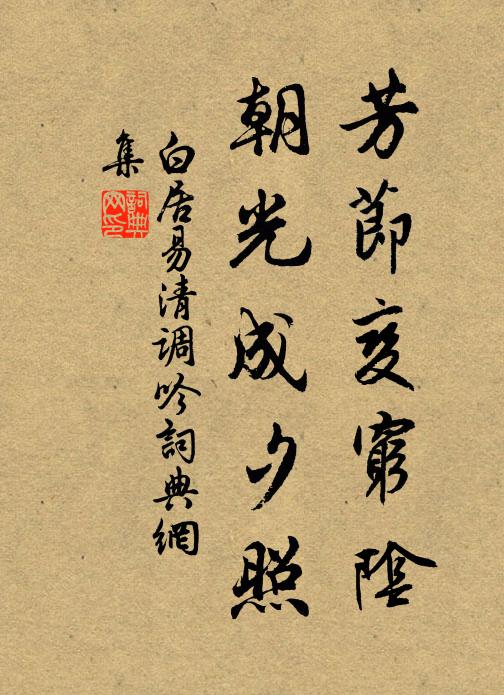 芳節变窮陰
朝光成夕照
白居易清調吟詞典網
集
詞典
网印